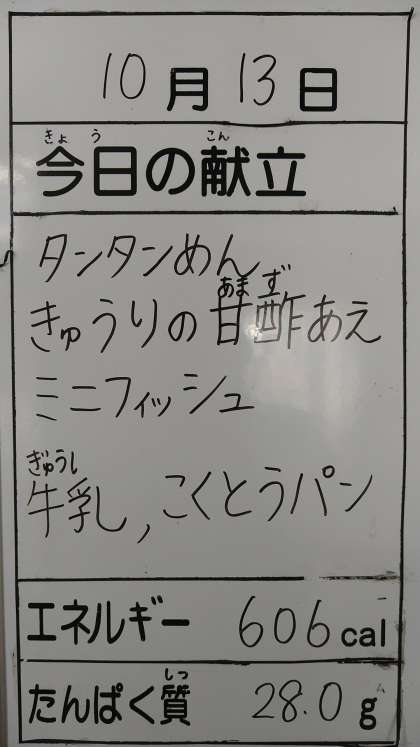 10月13日
きょう こん
今日の献立
タンタンめん
あまず
きゅうりの甘酢あえ
ミニフィッシュ
ぎゅうし
牛乳,こくとうパン
エネルギー 606cal
しつ
たんぱく質 28.0g